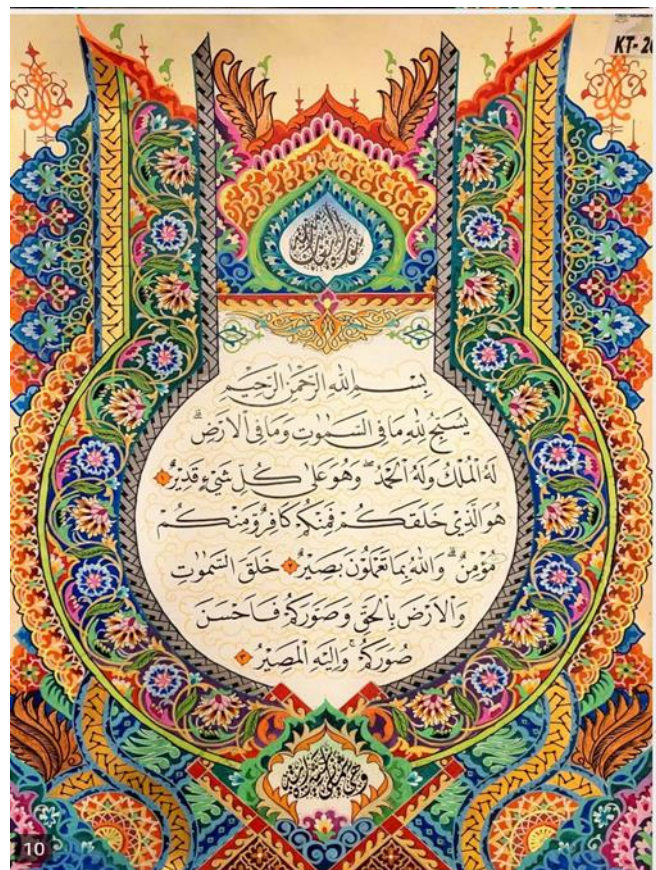 KT- 2
بِسْمِ اللهِ الرَّحْمٰنِ الرَّحِيْمِ
يُسَبِّحُ لِلهِ مَا فِى السَّمٰوٰتِ وَمَا فِى الْاَرْضِۚ
لَهُ الْمُلْكُ وَلَهُ الْحَمْدُۖ وَهُوَ عَلٰى كُلِّ شَيْءٍ قَدِيْرٌ ١
هُوَ الَّذِيْ خَلَقَكُمْ فَمِنْكُمْ كَافِرٌ وَّمِنْكُمْ
مُّؤْمِنٌۗ وَاللهُ بِمَا تَعْمَلُوْنَ بَصِيْرٌ ٢ خَلَقَ السَّمٰوٰتِ
وَالْاَرْضَ بِالْحَقِّ وَصَوَّرَكُمْ فَاَحْسَنَ
صُوَرَكُمْۚ وَاِلَيْهِ الْمَصِيْرُ ٣
10